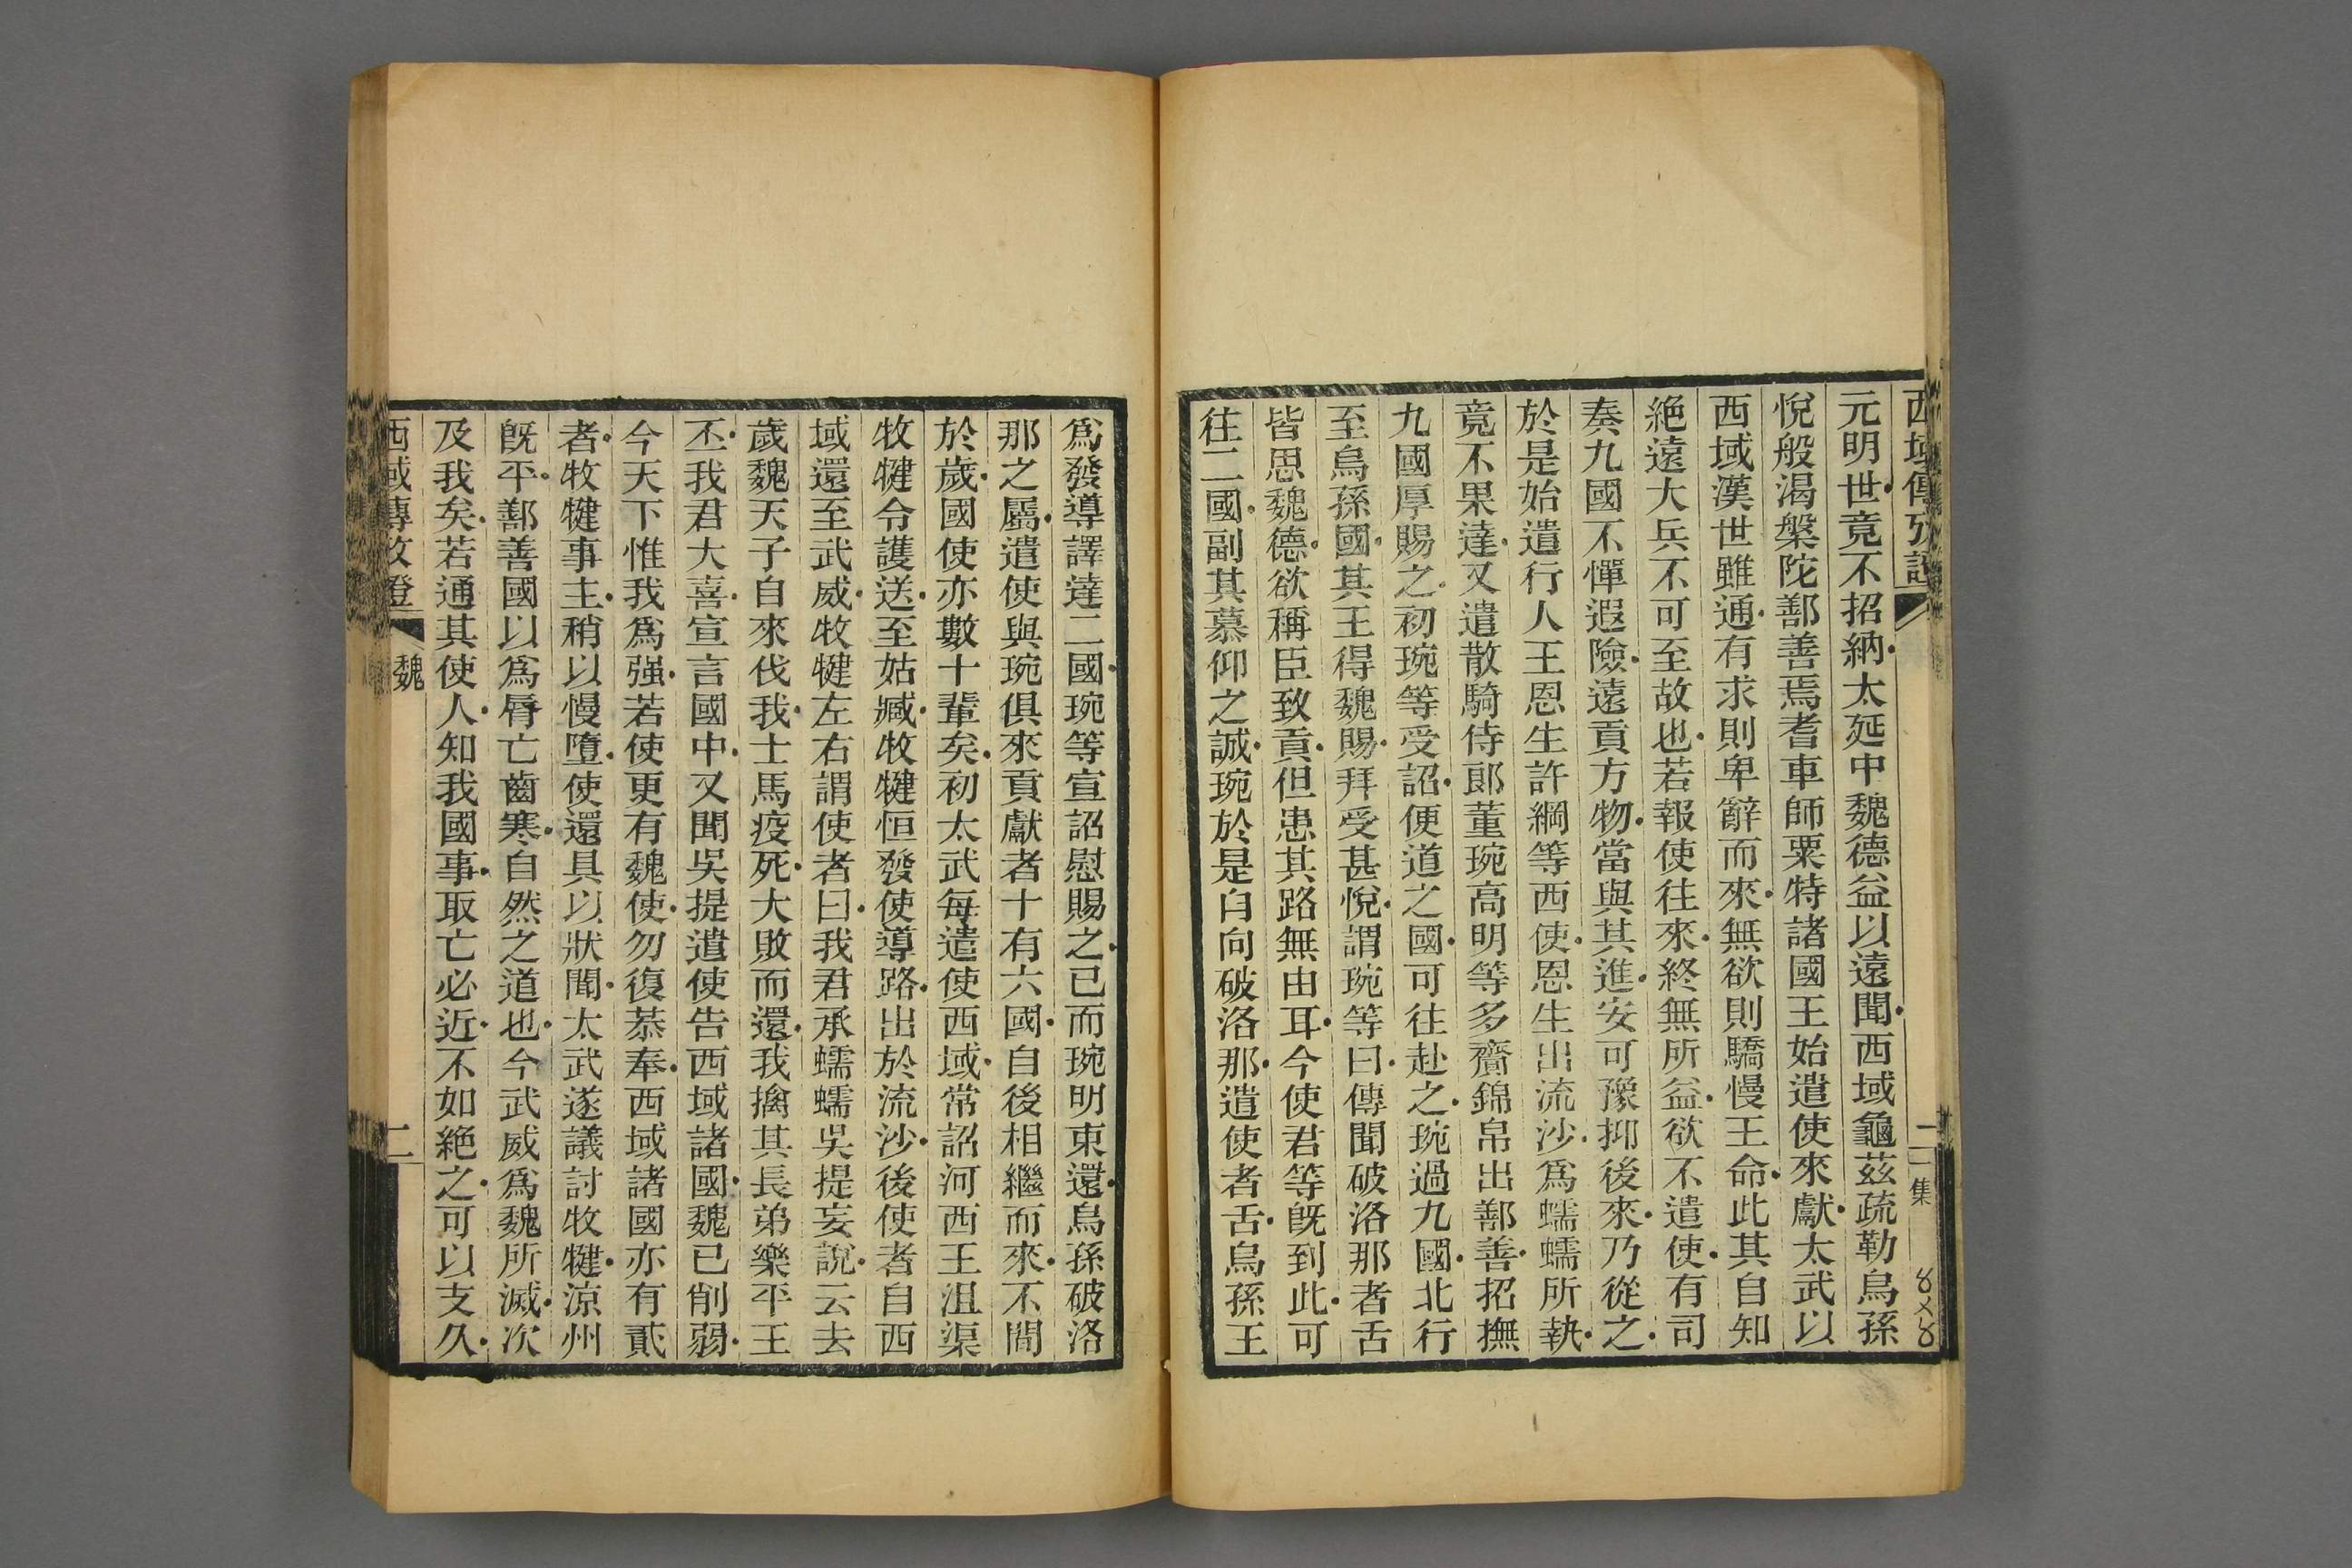 西域傳攷證
二集
元明世竟不招納太延中魏德益以遠聞西域龜茲疏勒烏孫
悅般渴槃陀鄯善焉耆車師粟特諸國王始遣使來獻太武以
西域漢世雖通有求則卑辭而來無欲則驕慢王命此其自知
絕遠大兵不可至故也若報使往來終無所益欲不遣使有司
奏九國不憚遐險遠貢方物當與其進安可豫抑後來乃從之
於是始遣行人王恩生許綱等西使恩生出流沙爲蠕蠕所執
竟不果達又遣散騎侍郎董琬高明等多齎錦帛出鄯善招撫
九國厚賜之初琬等受詔便道之國可往赴之琬過九國北行
至烏孫國其王得魏賜拜受甚悅謂琬等曰傳聞破洛那者舌
皆思魏德欲稱臣致貢但患其路無由耳今使君等旣到此可
往二國副其慕仰之誠琬於是自向破洛那遣使者舌烏孫王
爲發導譯達二國琬等宣詔慰賜之已而琬明東還烏孫破洛
那之屬遣使與琬俱來貢獻者十有六國自後相繼而來不間
於歲國使亦數十輩矣初太武每遣使西域常詔河西王沮渠
牧犍令護送至姑臧牧犍恒發使導路出於流沙後使者自西
域還至武威牧犍左右謂使者曰我君承蠕蠕吳提妄說云去
歲魏天子自來伐我士馬疫死大敗而還我擒其長弟樂平王
丕我君大喜宣言國中又聞吳提遣使告西域諸國魏已削弱
今天下惟我爲强若使更有魏使勿復恭奉西域諸國亦有貳
者牧犍事主稍以慢墮使還具以狀聞太武遂議討牧犍涼州
旣平鄯善國以爲脣亡齒寒自然之道也今武威爲魏所滅次
及我矣若通其使人知我國事取亡必近不如絕之可以支久
西域傳攷證
魏
二